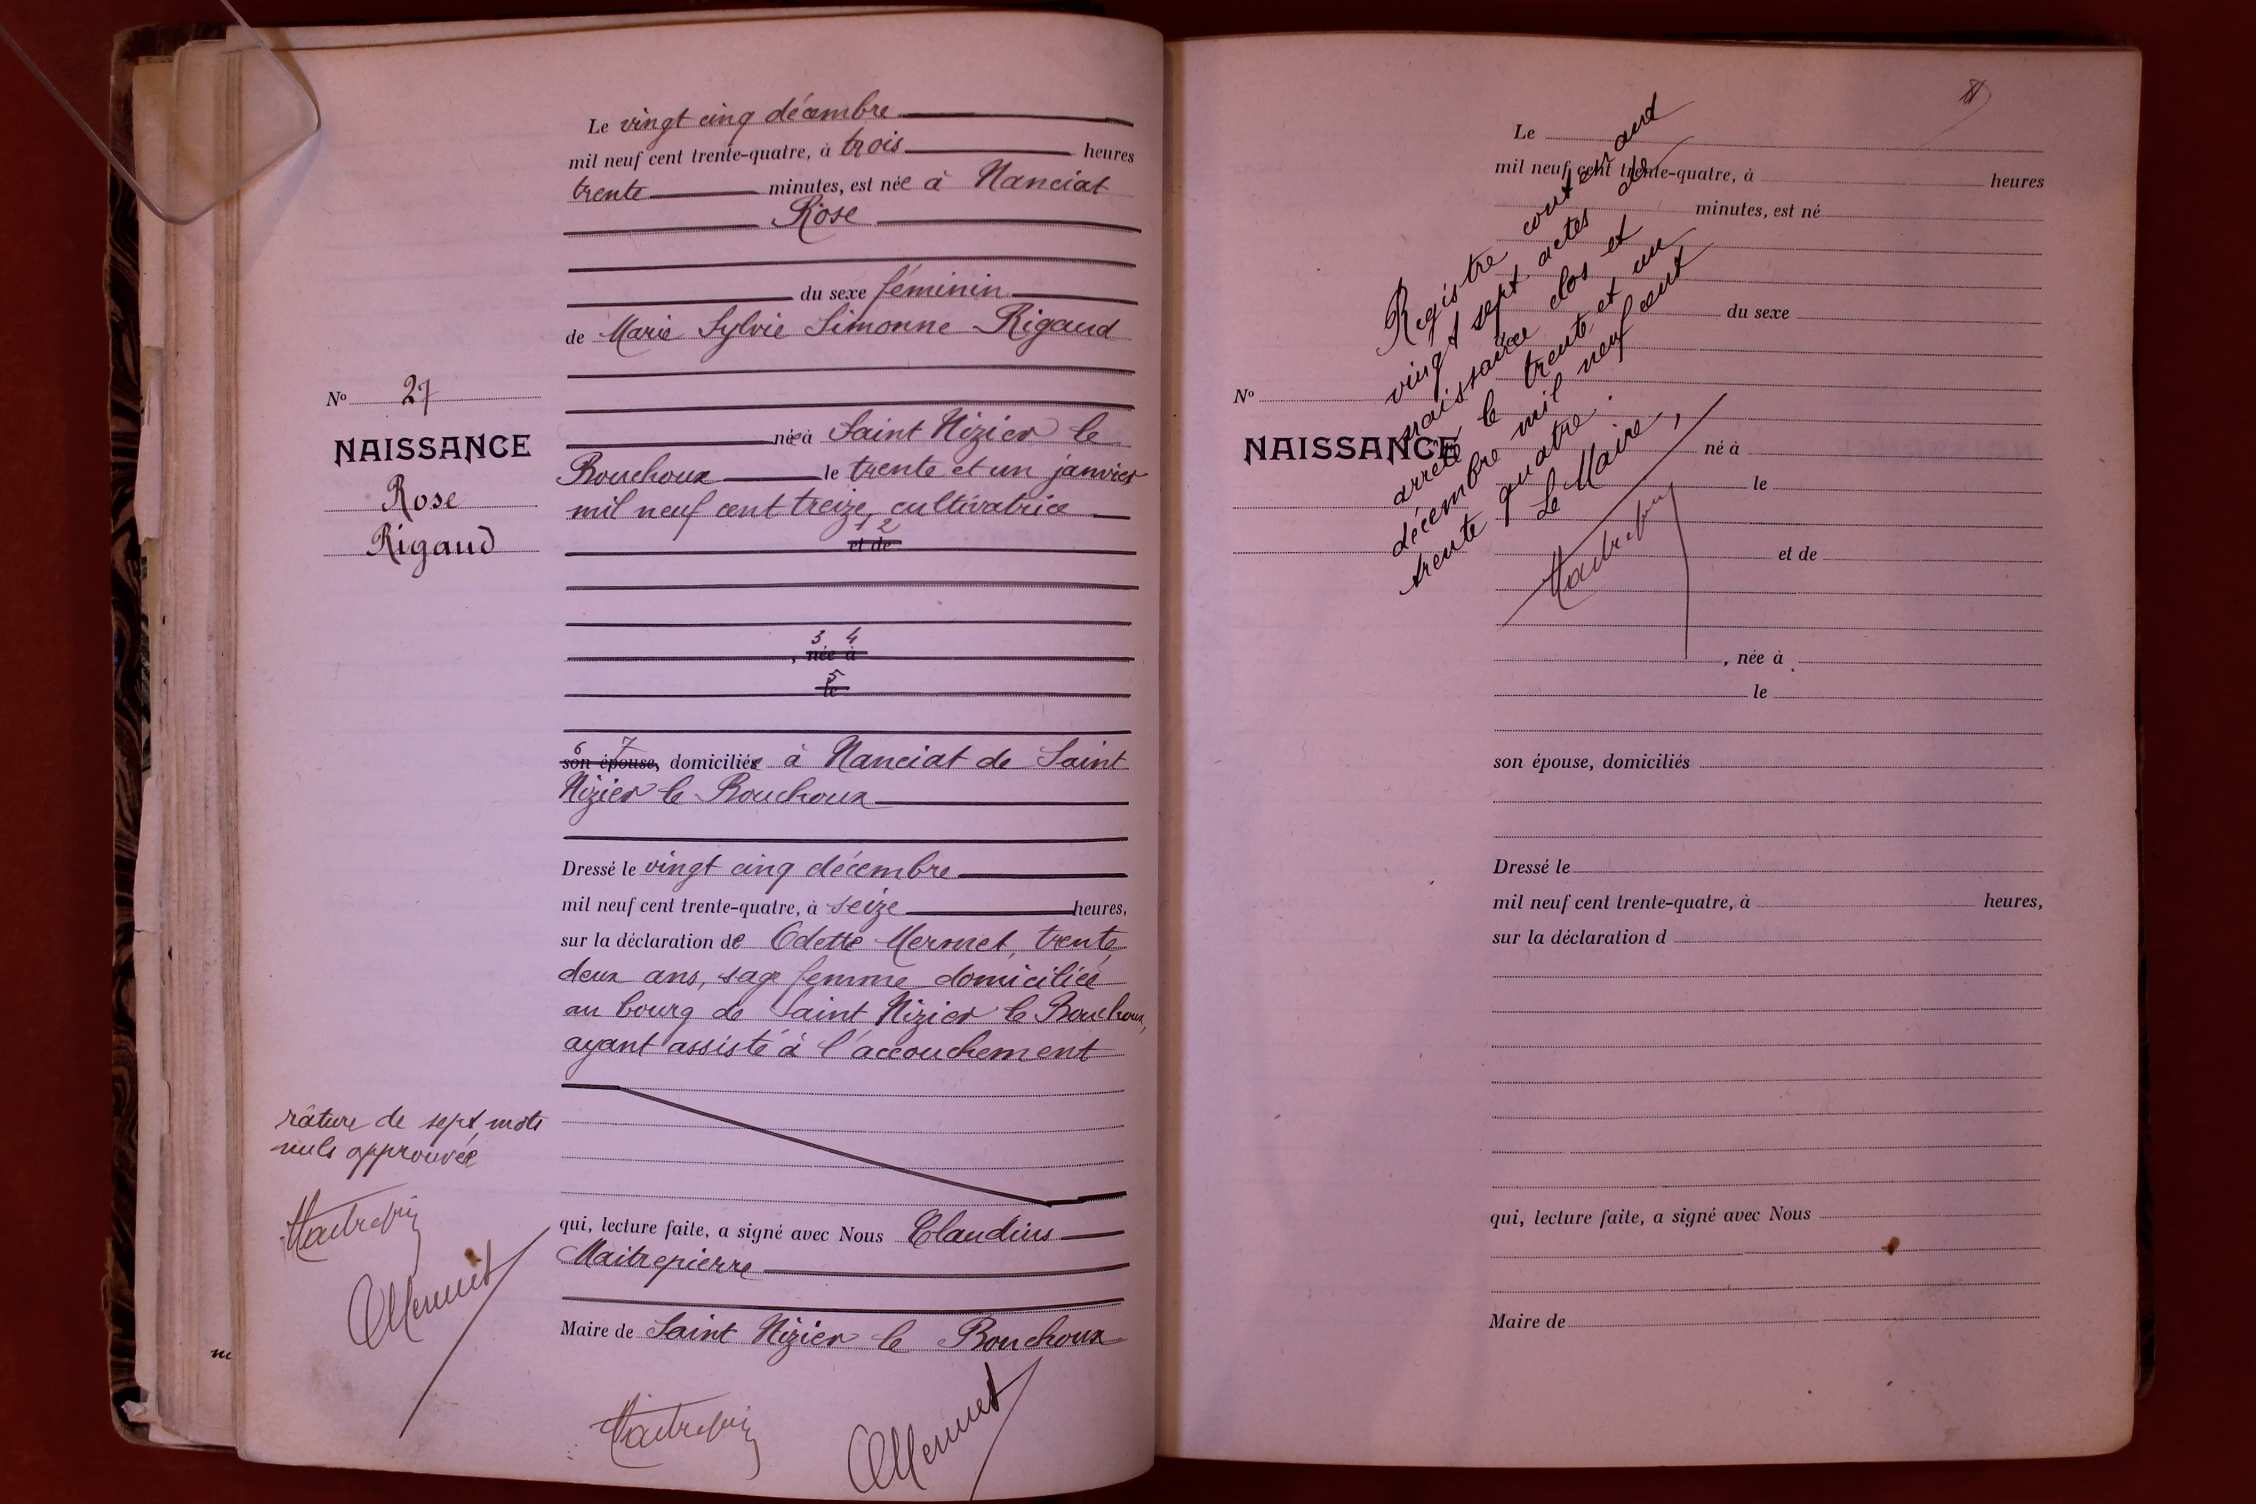 Le vingt cinq décembre
mil neuf cent trente-quatre, à trois heures
trente minutes, est née à Nanciat
Rose
du sexe féminin
de Marie Sylvie Simonne Rigaud
née à Saint Nizier le
Bouchoux le trente et un janvier
mil neuf cent treize, cultivatrice
1 2
et de
3 4
, née à
5
le
6 7
son épouse, domiciliée à Nanciat de Saint
Nizier le Bouchoux
Dressé le vingt cinq décembre
mil neuf cent trente-quatre, à seize heures,
sur la déclaration de Odette Mermet, trente
deux ans, sage femme domiciliée
au bourg de Saint Nizier le Bouchoux,
ayant assisté à l'accouchement
qui, lecture faite, a signé avec Nous Claudius
Maitrepierre
Maire de Saint Nizier le Bouchoux
Maitrepierre
OMermet
No 27
NAISSANCE
Rose
Rigaud
râture de sept mots
nuls approuvée
Maitrepierre
OMermet
Le
mil neuf cent trente-quatre, à heures
minutes, est né
du sexe
né à
le
et de
, née à
le
son épouse, domiciliés
Dressé le
mil neuf cent trente-quatre, à heures,
sur la déclaration d
qui, lecture faite, a signé avec Nous
Maire de
No
NAISSANCE
Registre contenant
vingt sept actes de
naissance clos et
arrêté le trente et un
décembre mil neuf cent
trente quatre.
Le Maire,
Maitrepierre